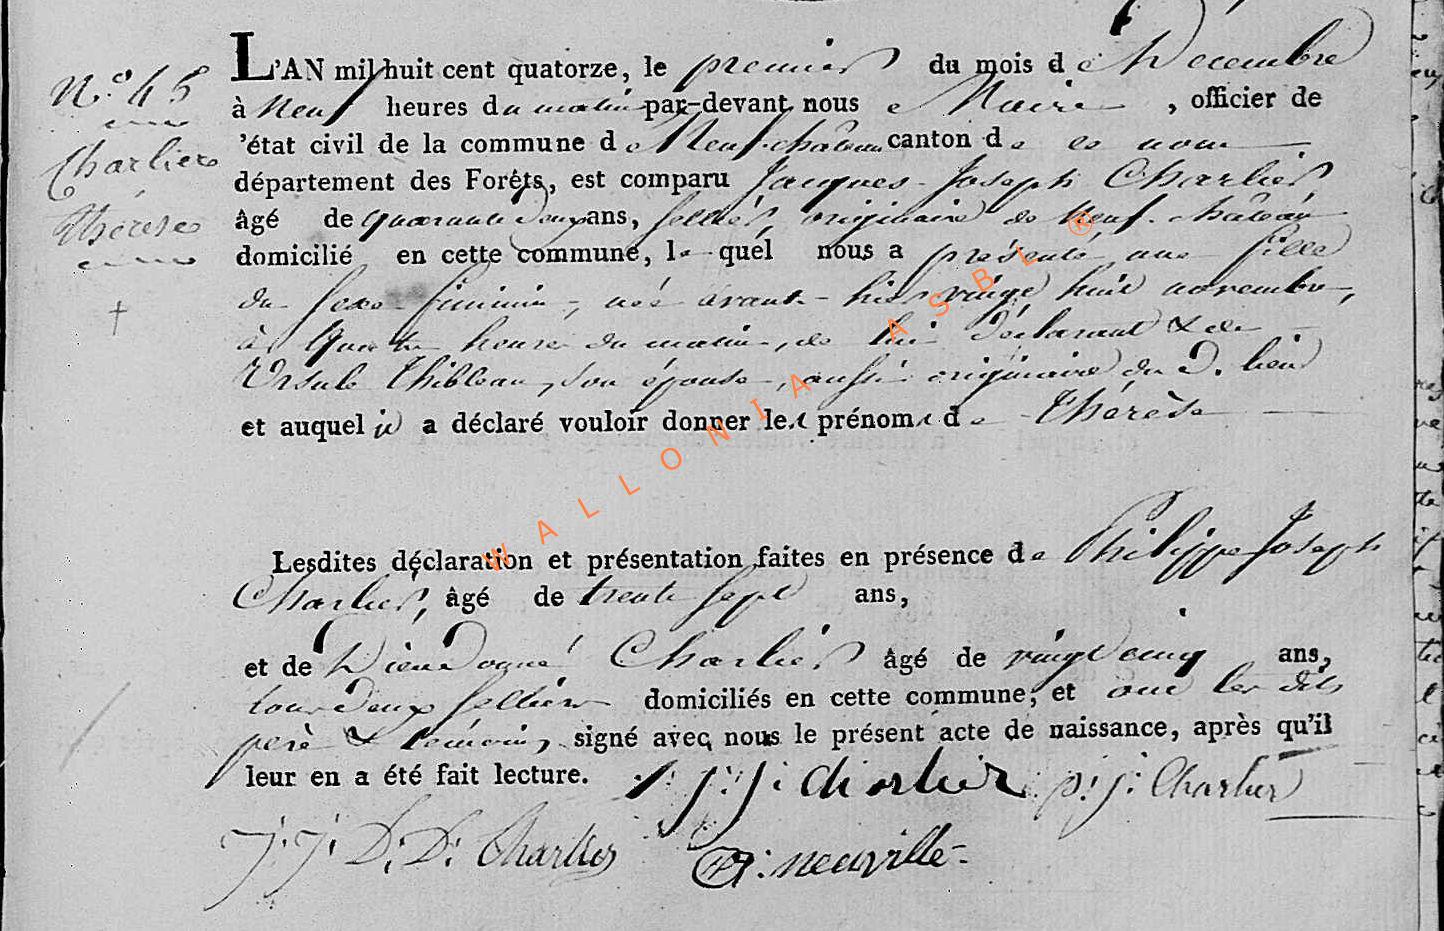 N.° 45
Charlier
Thérèse
L'AN mil huit cent quatorze, le premier du mois de Decembre
à Neuf heures du matin par-devant nous Maire, officier de
'état civil de la commune de Neufchâteau canton de ce nom
département des Forêts, est comparu Jacques-Joseph Charlier,
âgé de quarante Deux ans, sellier, originaire de Neuf-château
domicilié en cette commune, le quel nous a présenté une fille
du sexe féminin, née avant-hier vingt huit novembre,
à Quatre heures du matin, de lui Déclarant & de
Ursule Thibleau, son épouse, aussi originaire du D. lieu
et auquel il a déclaré vouloir donner les prénoms de Thérèse
Lesdites déclaration et présentation faites en présence de Philippe Joseph
Charlier, âgé de trente sept ans,
et de Dieudonné Charlier âgé de vingt cinq ans,
tous Deux selliers domiciliés en cette commune; et ont les dits
père & témoins signé avec nous le présent acte de naissance, après qu'il
leur en a été fait lecture. j: j: charlier p: j: Charlier
J: J: D: D: Charlier neuville
WALLONIA ASBL ®